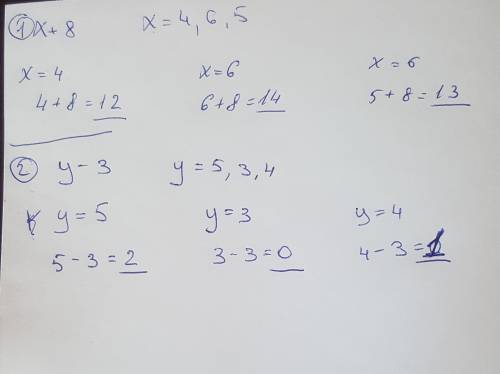 ① x + 8   x = 4, 6, 5
x = 4   x = 6   x = 6
4 + 8 = 12   6 + 8 = 14   5 + 8 = 13
② y - 3   y = 5, 3, 4
y = 5   y = 3   y = 4
5 - 3 = 2   3 - 3 = 0   4 - 3 = 1